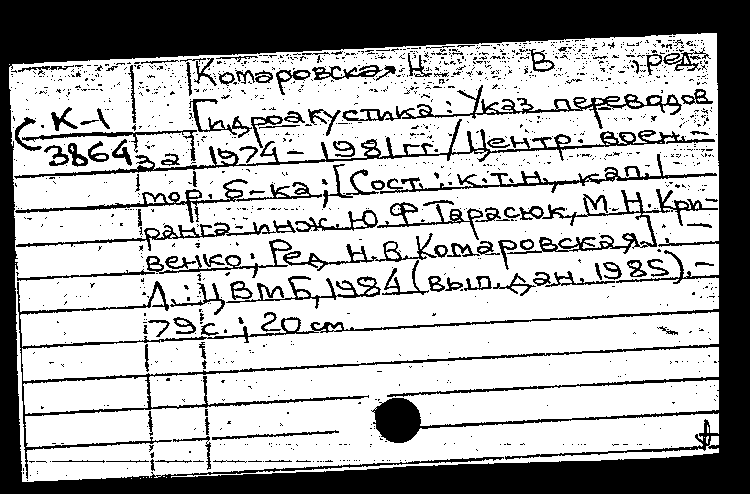 Комаровская Н. В., ред.
К-1 Гидроакустика: Указ. переводов
3864 за 1974 – 1981 гг. / Центр. воен.-
мор. б-ка; [Сост.: к.т.н., кап. 1
ранга-инж. Ю. Ф. Тарасюк, М. Н. Кри-
венко; Ред. Н. В. Комаровская]. –
Л.: ЦВМБ, 1984 (вып. дан. 1985). –
79 с.; 20 см.